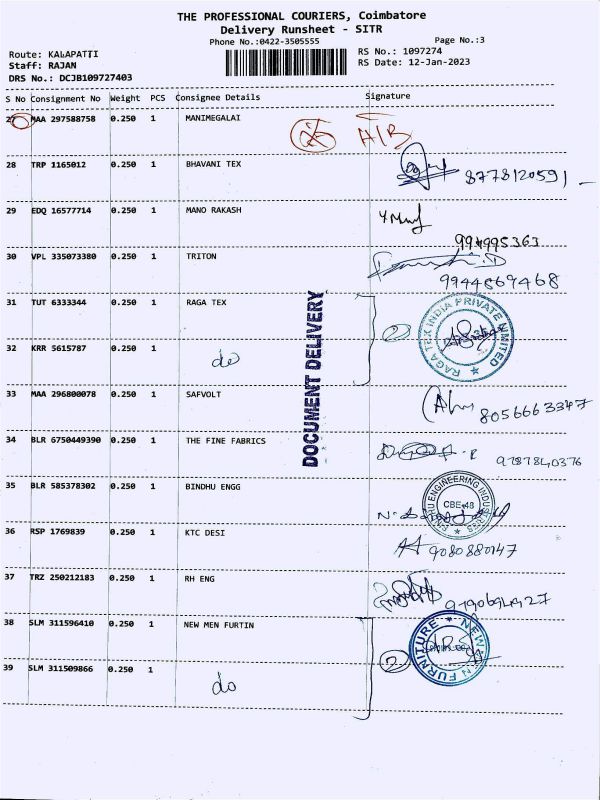 THE PROFESSIONAL COURIERS, Coimbatore
Delivery Runsheet - SITR
Phone No.:0422-3505555
Page No.:3
Route: KALAPATTI
RS No.: 1097274
Staff: RAJAN
RS Date: 12-Jan-2023
DRS No.: DCJB109727403
S No Consignment No Weight PCS Consignee Details Signature
27 MAA 297588758 0.250 1 MANIMEGALAI A/B
28 TRP 1165012 0.250 1 BHAVANI TEX 8778120591
29 EDQ 16577714 0.250 1 MANO RAKASH
994995363
30 VPL 335073380 0.250 1 TRITON
9944869468
31 TUT 6333344 0.250 1 RAGA TEX 2
RAGA TEX INDIA PRIVATE LIMITED
32 KRR 5615787 0.250 1 do
DOCUMENT DELIVERY
33 MAA 296800078 0.250 1 SAFVOLT 8056663347
34 BLR 6750449390 0.250 1 THE FINE FABRICS 9787840376
35 BLR 585378302 0.250 1 BINDHU ENGG
ENGINEERING INDUSTRIES
CBE-48
36 RSP 1769839 0.250 1 KTC DESI 9080880147
37 TRZ 250212183 0.250 1 RH ENG
38 SLM 311596410 0.250 1 NEW MEN FURTIN 2
NEW FURNITURE
39 SLM 311509866 0.250 1 do